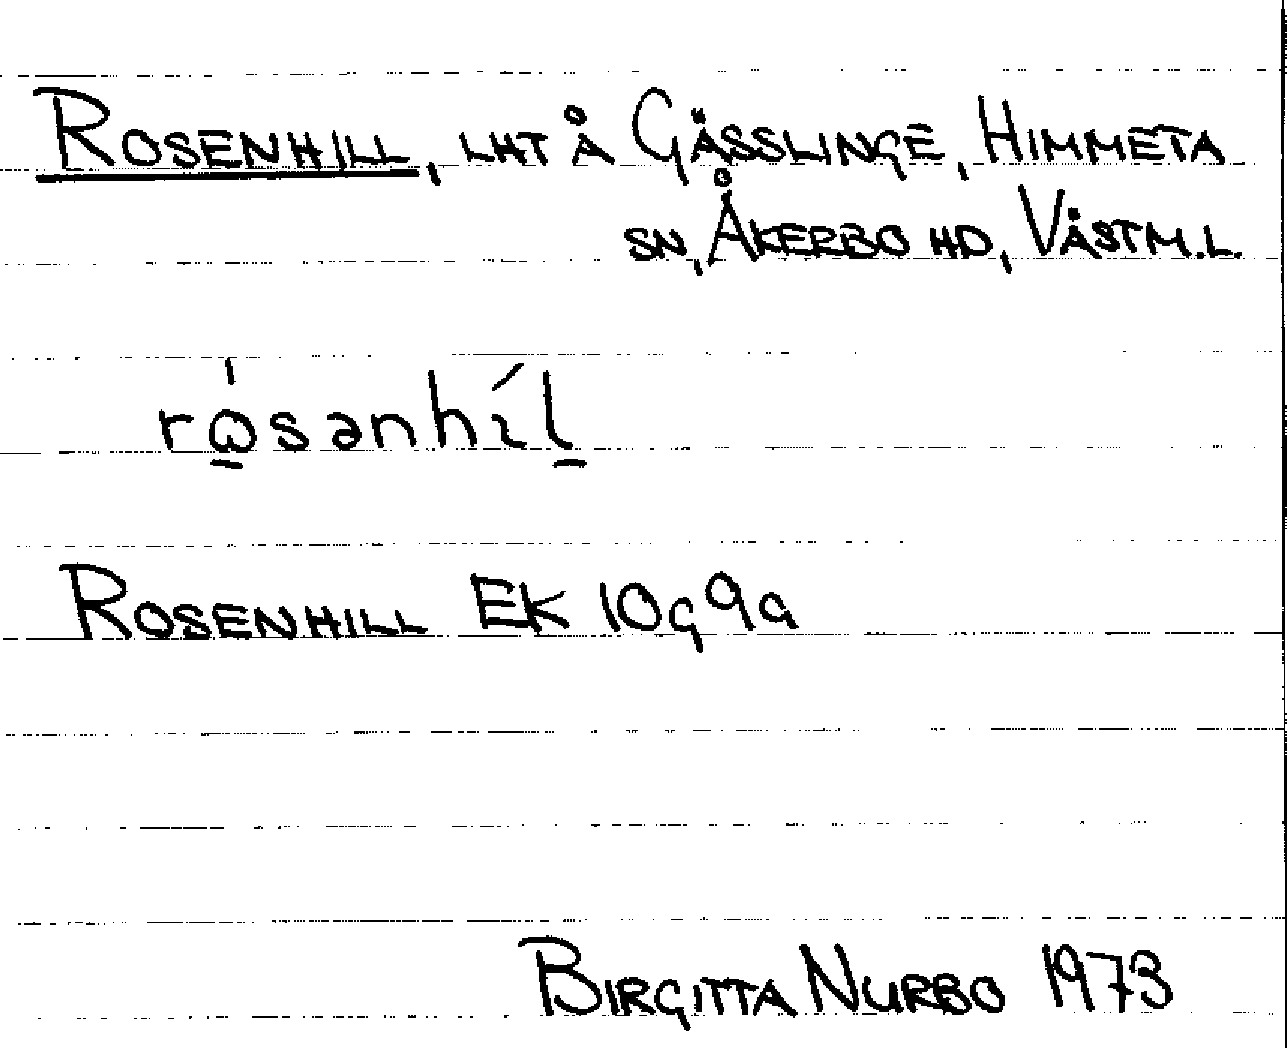 ROSENHILL, LHT Å GÄSSLINGE, HIMMETA
SN, ÅKERBO HD, VÄSTM.L.
rώ̲sənhíl̲
ROSENHILL EK 10g9a
BIRGITTA NURBO 1973